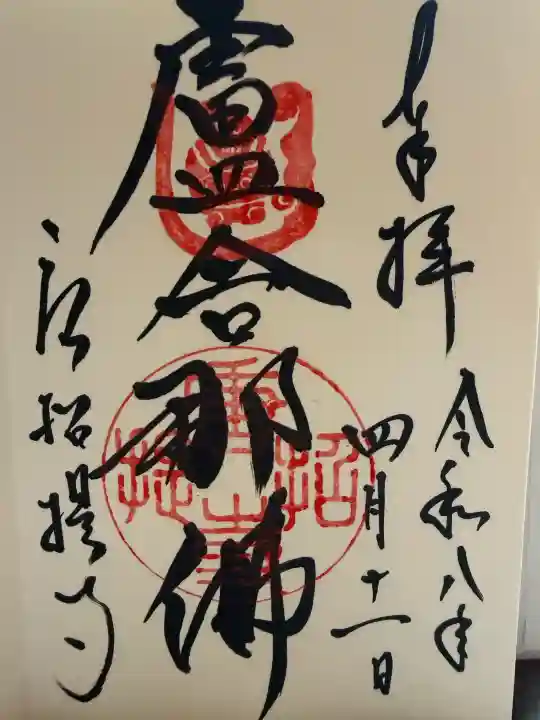 奉拝
令和八年
四月十一日
盧舎那佛
唐招提寺